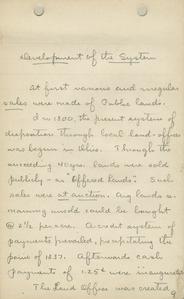 Development of the System
At first various and irregular
sales were made of Public lands.
In 1800, the present system of
disposition through local land-offices
was begun in Ohio. Through the
succeeding 40 yrs. lands were sold
publicly - as "Offered lands". Such
sales were at auction. Any lands re-
maining unsold could be bought
@ 2½ per acre. A credit system of
payments prevailed, precipitating the
panic of 1837. Afterwards cash
payments of 1.25¢ were inaugurated
The Land Office was created